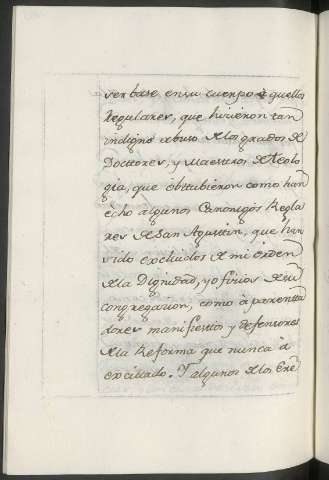 verbase en su cuerpo à quellos
Regulares, que hicieron tan
indigno abuso de los grados de
Doctores, y Maestros de Teolo
gia, que obttubieron como han
echo algunos Canonigos Regla
res de San Agustin, que han
sido excluidos de mi orden
de la Dignidad, y oficios de su
congregacion, como à
dores manifiestos y defensores
de la Reforma que nunca à
. Y algunos de los